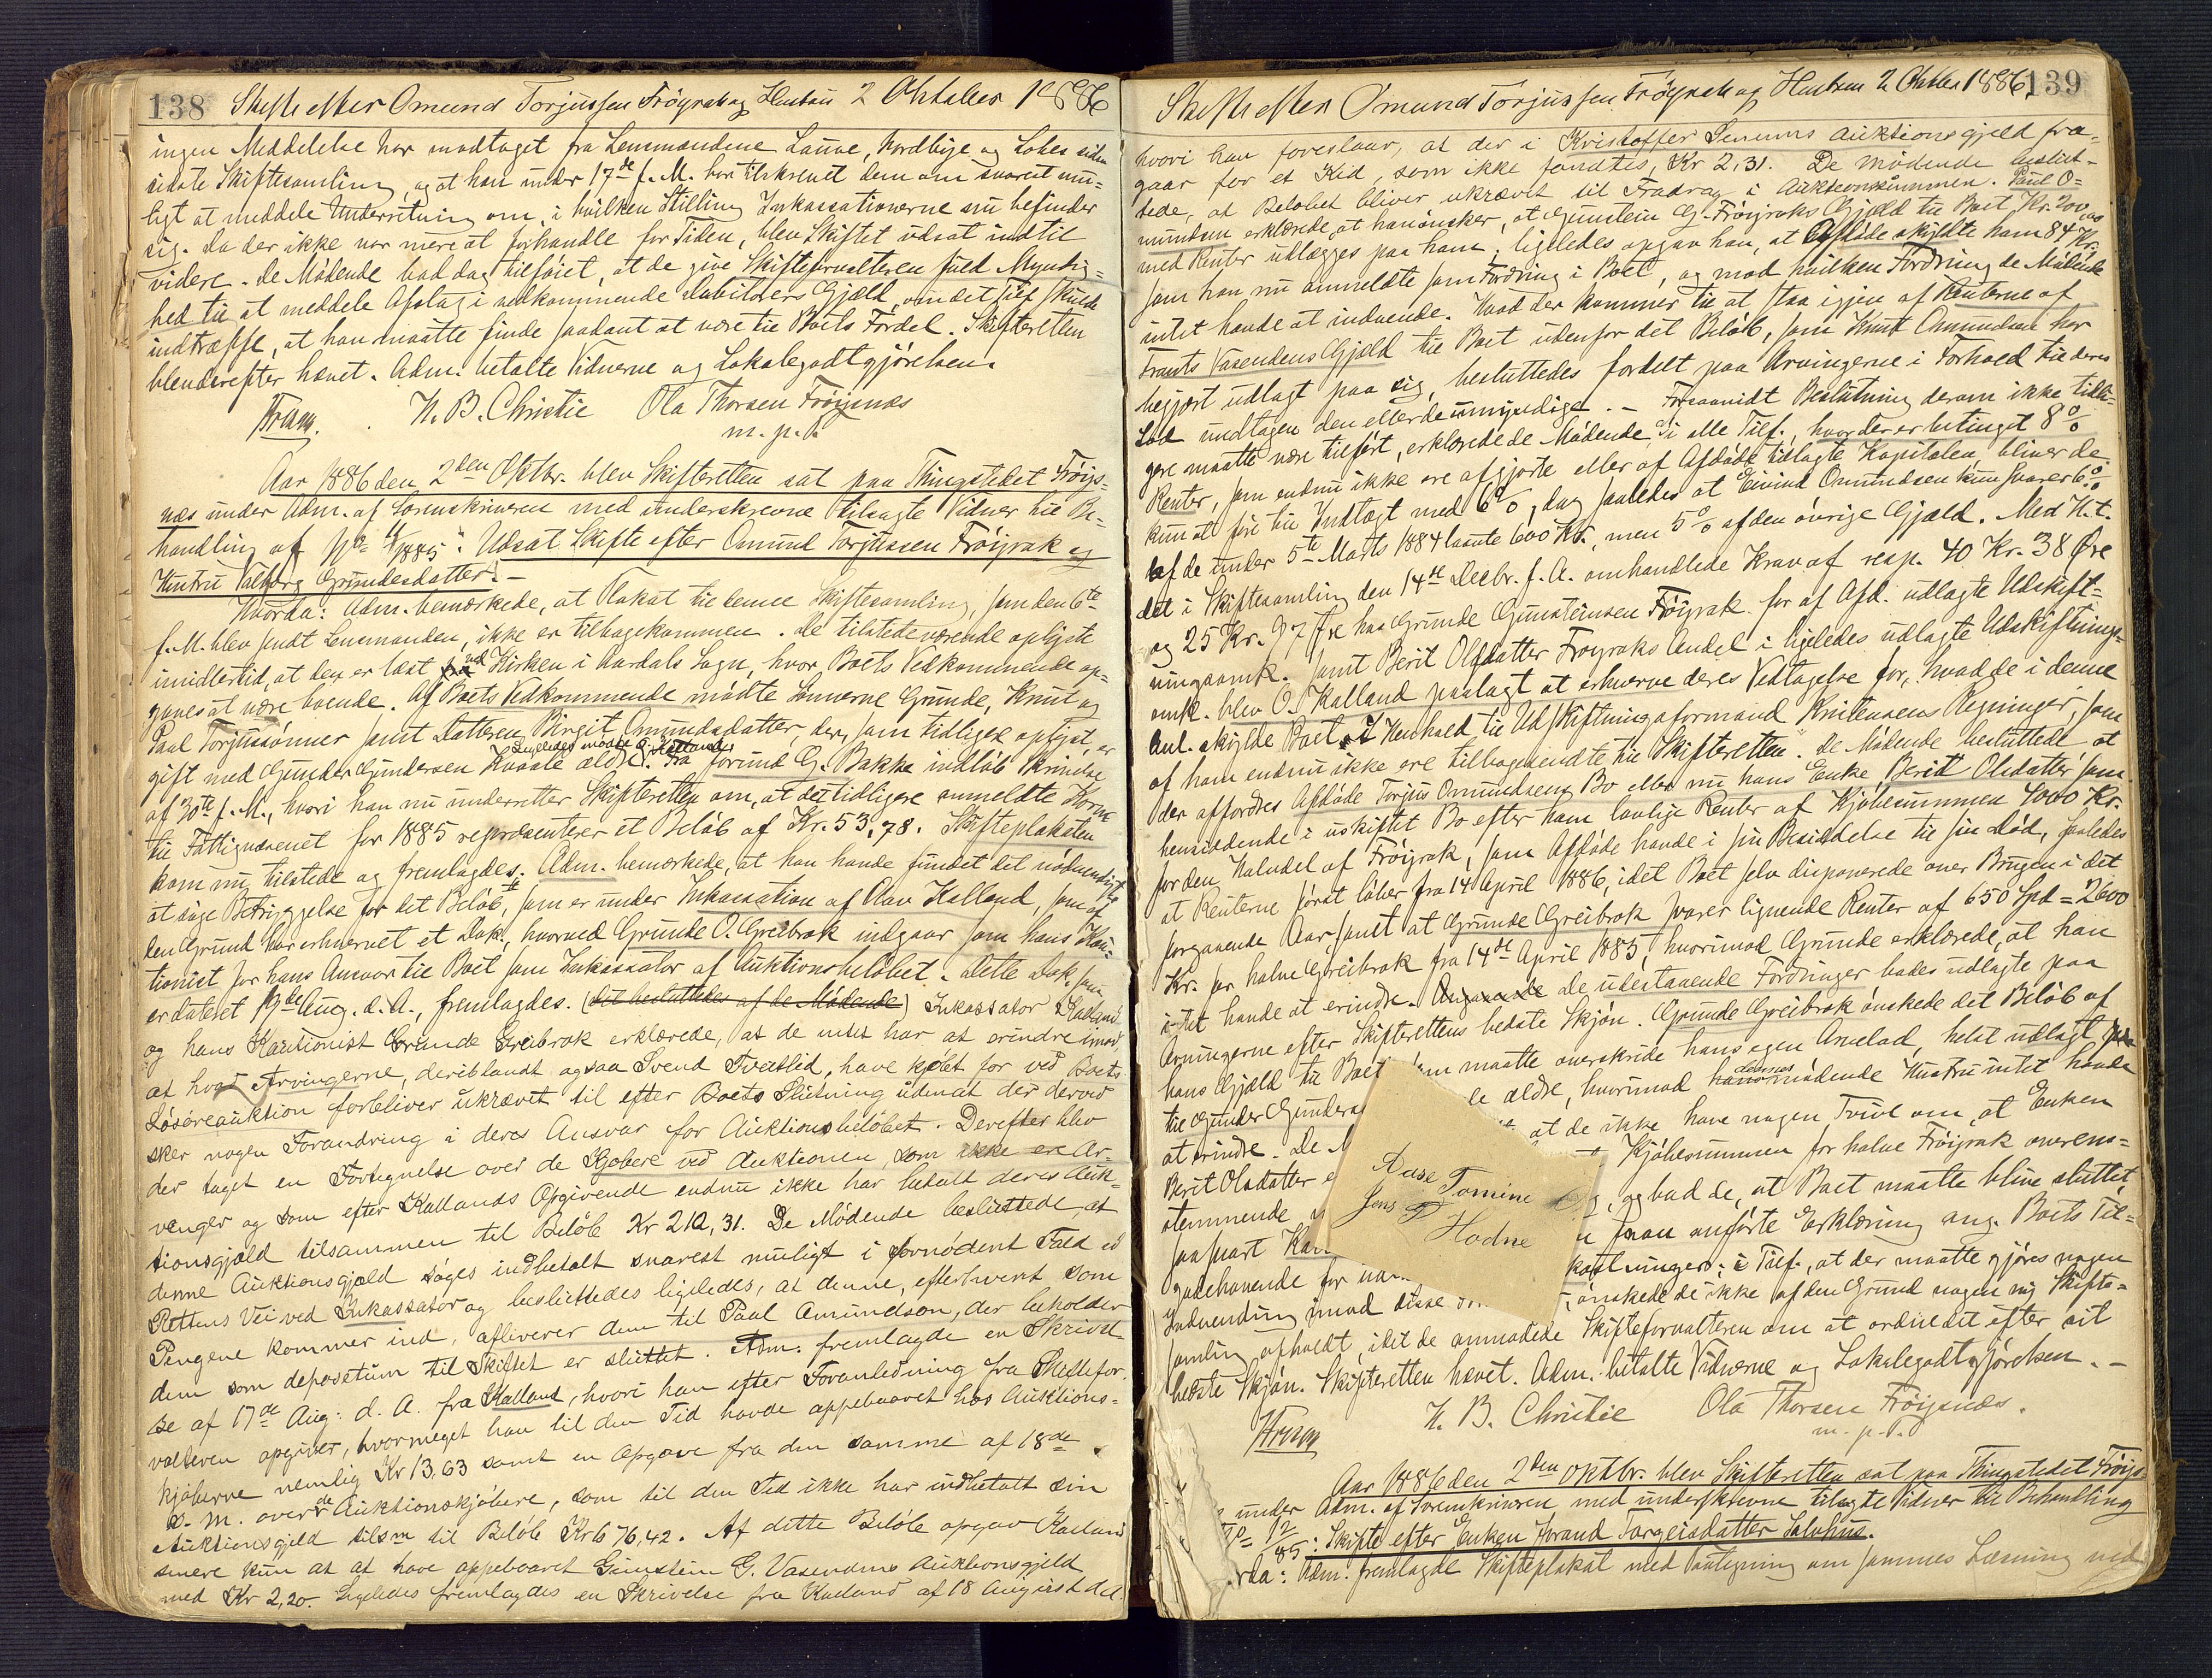 138 Skifte efter Omund Torjussen Frøyrak og Hustru 2 Oktober 1886
ingen Meddelelse har modtaget fra Lensmændene Lauve, Nordbye og Lohes siden
sidste Skiftesamling, og at han under 17de f. M. har tilskrevet dem om snarest mu-
ligt at meddele Underretning om, i hvilken Stilling Inkassationerne nu befinder
sig. Da der ikke var mere at forhandle for Tiden, blev Skiftet udsat indtil
videre. De Mødende bad dog tilføiet, at de give Skifteforvalteren fuld Myndig-
hed til at meddele Afslag i vedkommende Debitorers Gjæld, om det Tilf. skulde
indtræffe, at han maatte finde saadant at være til Boets Fordel. Skifteretten
blev derefter hævet. Adm. betalte Vidnerne og Lokalegodtgjørelsen.
H. B. Christie Ola Thorsen Frøysnæs
m. p. P.
Aar 1886 den 2den Oktbr. blev Skifteretten sat paa Thingstedet Frøys-
næs under Adm. af Sorenskriveren med underskrevne tilsagte Vidner til Be-
handling af No 4/1885: Udsat Skifte efter Omund Torjussen Frøyrak og
Hustru Valborg Grundesdatter. —
Hvorda: Adm. bemærkede, at Plakat til denne Skiftesamling, som den 6te
f. M. blev sendt Lensmanden, ikke er tilbagekommen. De tilstedeværende oplyste
imidlertid, at den er læst ved Kirken i Aardals Sogn, hvor Boets Vedkommende op-
gaves at være boende. Af Boets Vedkommende mødte Sønnerne Grunde, Knut og
Paul Torjussønner samt Datteren Birgit Omundsdatter, der, som tidligere oplyst, er
Ligeledes mødte O. Kalland
gift med Gunder Gundersen Kvaale ældre. Fra Jorund G. Bakke indløb Skrivelse
af 30te f. M., hvori han nu underretter Skifteretten om, at det tidligere anmeldte Korn
til Fattigvæsenet for 1885 repræsenterer et Beløb af Kr. 53,78. Skifteplakaten
kom nu tilstede og fremlagdes. Adm. bemærkede, at han havde fundet det nødvendigt
at søge Betryggelse for det Beløb, som er under Inkassation af Olav Kalland, som af
den Grund har erhvervet et Dok., hvorved Grunde O. Greibrok indgaar som hans Kau-
tionist for hans Ansvar til Boet som Inkassator af Auktionsbeløbet. Dette Dok., som
er dateret 19de Aug. d. A., fremlagdes. (det besluttedes af de Mødende) Inkassator Kalland
og hans Kautionist Grunde Greibrok erklærede, at de intet har at erindre imod,
at hvad Arvingerne, deriblandt ogsaa Svend Tveitlid, have kjøbt for ved Boets
Løsøreauktion forbliver ukrævet til efter Boets Slutning uden at der derved
sker nogen Forandring i deres Ansvar for Auktionsbeløbet. Derefter blev
der taget en Fortegnelse over de Kjøbere ved Auktionen, som ikke er Ar-
vinger og som efter Kallands Opgivende endnu ikke har betalt deres Auk-
tionsgjæld tilsammen til Beløb Kr 210,31. De Mødende besluttede, at
denne Auktionsgjæld søges indbetalt snarest muligt i fornødent Fald ad
Rettens Vei ved Inkassator og besluttedes ligeledes, at denne, efterhvert som
Pengene kommer ind, afliverer dem til Paul Omundson, der beholder
dem som depositum til Skiftet er sluttet. Adm. fremlagde en Skrivel-
se af 17de Aug: d. A. fra Kalland, hvori han efter Foranledning fra Skiftefor-
valteren opgiver, hvormeget han til den Tid havde oppebaaret hos Auktions-
kjøberne nemlig Kr 13,63 samt en Opgave fra den samme af 18de
s. M. over de Auktionskjøbere, som til den Tid ikke har indbetalt sin
Auktionsgjæld tilsm til Beløb Kr 676,42. Af dette Beløb opgav Kalland
senere kun at at have oppebaaret Gunstein G. Vasendens Auktionsgjæld
med Kr 2,20. Ligeledes fremlagdes en Skrivelse fra Kalland af 18 August d. A.
Skifte efter Omund Torjussen Frøyrak og Hustru 2 Oktober 1886. 139
hvori han foreslaar, at der i Kristoffer Senums Auktionsgjæld fra-
gaar for et Kid, som ikke fandtes, Kr 2,31. De mødende beslut-
tede, at Beløbet bliver ukrævet til Fradrag i Auktionssummen. Paul O-
mundsen erklærede, at han ønsker, at Gunstein G. Frøyraks Gjæld til Boet Kr. 200,00
med Renter udlægges paa ham; ligeledes opgav han, at Afdøde skyldte ham 84 Kr.
som han nu anmeldte som Fordring i Boet, og mod hvilken Fordring de Mødende
intet havde at indvende. Hvad der kommer til at staa igjen af Renterne af
Frants Vasendens Gjæld til Boet udenfor det Beløb, som Knut Omundsen har
begjært udlagt paa sig, besluttedes fordelt paa Arvingerne i Forhold til deres
Lod undtagen den eller de umyndige. — Forsaavidt Beslutning derom ikke tidli-
gere maatte være tilført, erklærede de Mødende, at i alle Tilf., hvor der er betinget 8 %
Renter, som endnu ikke ere afgjorte eller af Afdøde tillagte Kapitalen, bliver de
kun at føre til Indtægt med 6 %, dog saaledes at Eivind Omundsen kun svarer 6 %
af de under 5te Marts 1884 laante 600 Kr., men 5 % af den øvrige Gjæld. Med H. t.
det i Skiftesamling den 14de Decbr. f. A. omhandlede Krav af resp. 40 Kr. 38 Øre
og 25 Kr. 97 Øre hos Grunde Gunsteinsen Frøyrak for af Afd. udlagte Udskift-
ningsomk. samt Berit Olsdatter Frøyraks Andel i ligeledes udlagte Udskiftnings-
omk. blev O. Kalland paalagt at erhverve deres Vedtagelse for, hvad de i denne
Anl. skylde Boet i Henhold til Udskiftningsformand Knitensens Regninger, som
af ham endnu ikke ere tilbagesendte til Skifteretten. De Mødende besluttede at
der affordres Afdøde Torjus Omundsens Bo eller nu hans Enke Berit Olsdatter som
hensiddende i uskiftet Bo efter ham lovlige Renter af Kjøbesummen 4000 Kr.
for den Halvdel af Frøyrak, som Afdøde havde i sin Besiddelse til sin Død, saaledes
at Renterne først løber fra 14 April 1886, idet Boet selv disponerede over Brugen i det
forgaaende Aar, samt at Grunde Greibrok svarer lignende Renter af 650 Spd = 2600
Kr. for halve Greibrok fra 14de April 1885, hvorimod Grunde erklærede, at han
intet havde at erindre. Angaaende de udestaaende Fordringer bades udlagte paa
Arvingerne efter Skifterettens bedste Skjøn. Grunde Greibrok ønskede det Beløb af
hans Gjæld til Boet som maatte overskride hans egen Arvelod, helst udlagt
til Gunder Gunders le ældre, hvorimod dennes mødende Hustru intet havde
at erindre. De M at de ikke have nogen Tvivl om, at Enken
Berit Olsdatter e Kjøbesummen for halve Frøyrak overens-
stemmende og bad de, at Boet maatte blive sluttet
saasnart foran anførte Erklæring ang. Boets Til-
godehavende for i Tilf., at der maatte gjøres nogen
Indvending imod disse ønskede de ikke af den Grund nogen ny Skifte-
samling afholdt, idet de anmodede Skifteforvalteren om at ordne det efter sit
bedste Skjøn. Skifteretten hævet. Adm. betalte Vidnerne og Lokalegodtgjørelsen. —
Aase Tomine
Jens P
Hodne
H. B. Christie Ola Thorsen Frøysnæs.
m. p. P.
Aar 1886 den 2den Oktbr. blev Skifteretten sat paa Thingstedet Frøys-
under Adm. af Sorenskriveren med underskrevne tilsagte Vidner til Behandling
No 12/85: Skifte efter Enken Jorand Torgeisdatter
rda: Adm. fremlagde Skifteplakat med Paategning om sammes Læsning ved